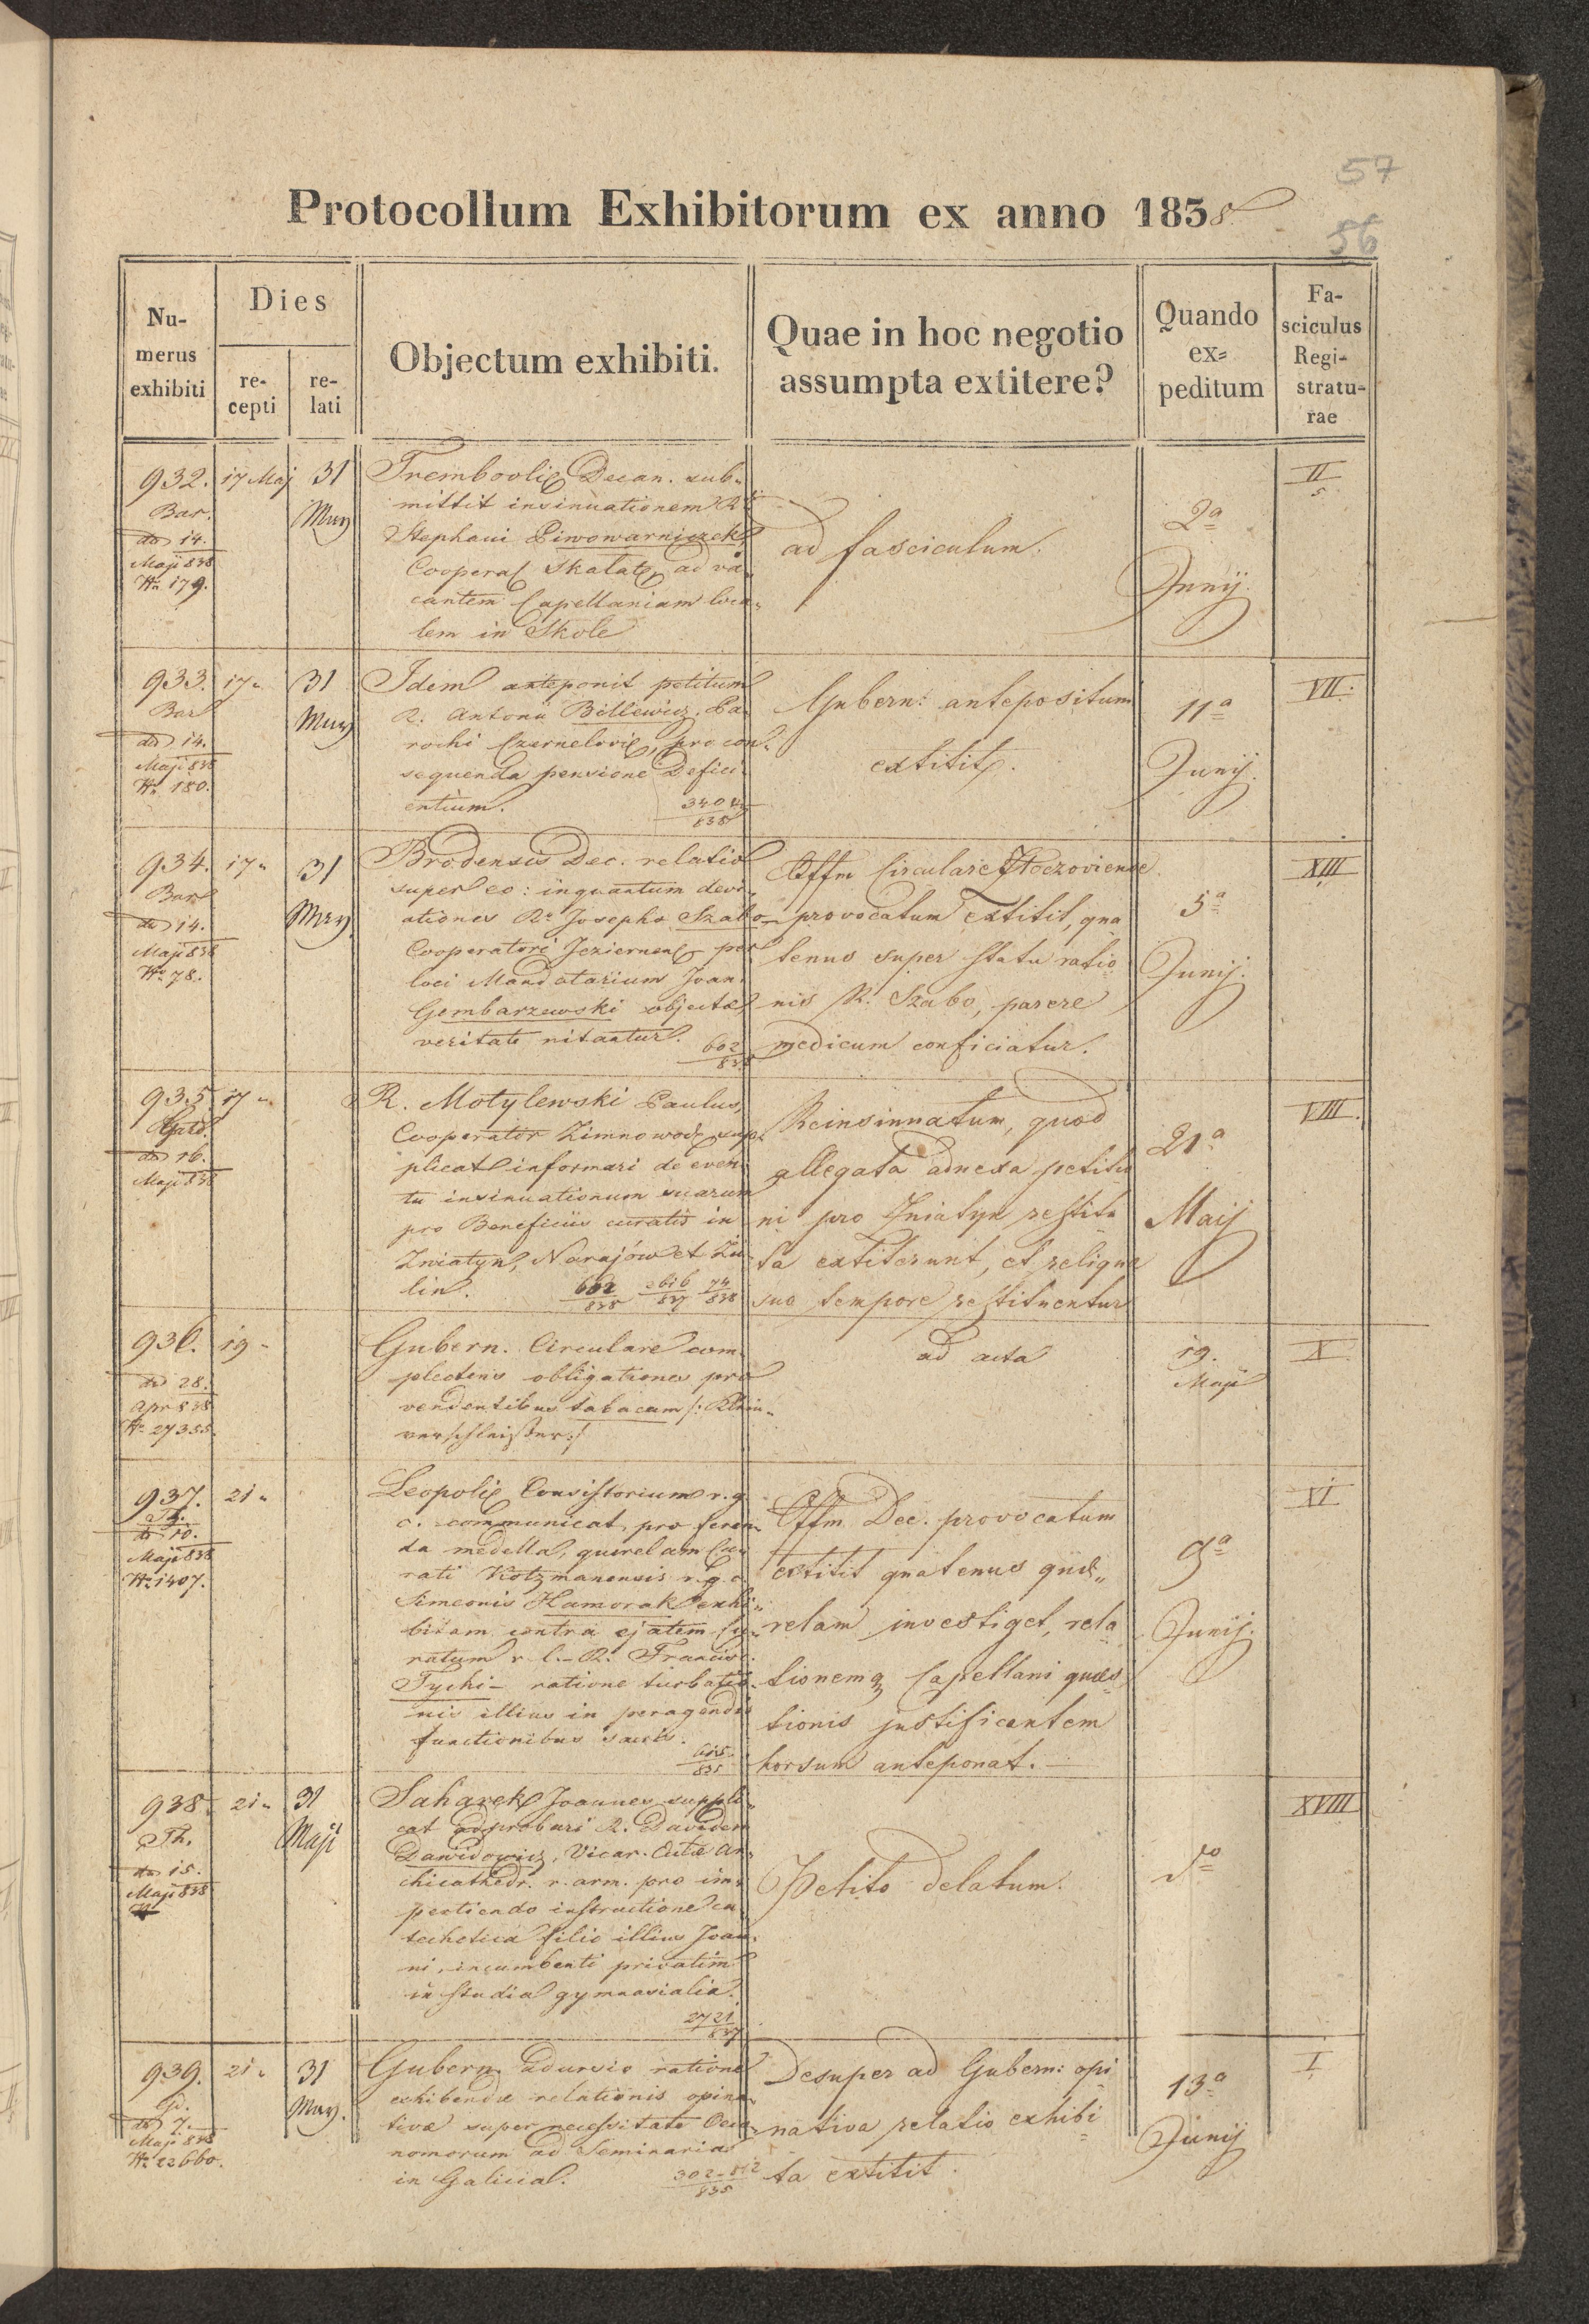 57
Protocollum Exhibitorum ex anno 1838
56
Nu-
merus
exhibiti
Dies
re-
cepti
re-
lati
Objectum exhibiti.
Quae in hoc negotio
assumpta extitere?
Quando
ex=
peditum
Fa-
sciculus
Regi-
stratu-
rae
932. 17 Maj 31
May
Bar.
dto 14.
Maji 838
Nr. 179.
Decan. sub-
mittit insinuationem Ri
Stephani Piwowarniczek,
ad va-
cantem Capellaniam loca-
lem in Skole
ad fasciculum.
2a
Junij.
II
5
933. 17- 31
May
Bar
dto 14.
Maji 838
Nr. 180.
Idem anteponit petitum
R. Antonii Billewicz, Pa-
rochi pro con-
sequenda pensione Defici-
entium.
Gubern: antepositum
extitit.
11a
Junij.
VII.
934. 17- 31
May.
Bar
dto 14.
Maji 838
Nr. 78.
Brodensis Dec. relatio
super eo: inquantum devi-
ationes Ro Josepho Szabo
Cooperatori per
loci Mandatarium Joan.
Gombarzewski objectae
veritate nitantur. 602
838
Offm Circulare Zloczoviense
provocatum extitit, qua
tenus super statu ratio
nis R. Szabo, parere
medicum conficiatur.
5a
Junij.
XIII
935 17-
dto 16.
Maji 838
R. Motylewski Paulus,
Cooperator sup-
plicat informari de even-
tu insinuationum suarum
pro Beneficiis curatis in
Zniatyn, Narajów et Zu-
lin. 602
838
2616
837
74
838
Reinsinuatum, quod
allegata adnexa petitio
ni pro Zniatyn restitu
ta extiterunt, et reliqua
suo tempore restituentur
21a
Maij
VIII.
936. 19-
dto 28.
Apr 838
Nr. 27355.
Gubern. Circulare com-
plectens obligationes pro
vendentibus tabacam /: Klein-
verschleißer :/
ad acta
19.
Maji
X
937. 21-
dto 10.
Maji 838
Nr. 1407.
Consistorium r. g.
c. communicat, pro feren-
da medella, querelam Cu-
rati Kotzmanensis r. g. c.
Simeonis Hamorak exhi-
bitam contra ejatem Cu-
ratum r. l. R. Francisc.
Tychi - ratione turbatio-
nis illius in peragendis
functionibus sacris.
615
838
Offm Dec. provocatum
extitit quatenus que-
relam investiget, rela
tionemq Capellani quaes
tionis justificantem
horsum anteponat.
9a
Junij.
XI
938 21- 31
Maji
Th.
dto 15.
Maji 838
Saharek Joannes suppli-
cat adprobari R. Davidem
Dawidowicz, Vicar. Ar-
chicathedr. r. arm. pro im-
pertiendo instructione ca-
techetica filio illius Joan-
ni, incumbenti privatim
in studia gymnasialia.
2721
837
Petito delatum.
dto
XVIII
939. 21- 31
May.
Gr.
dto 7.
Maji 838
Nr. 22660.
Gubern. adursio ratione
exhibendae relationis opina-
tivae super necessitate Oeco-
nomorum ad Seminaria
in Galicia. 302-512
835
Desuper ad Gubern: opi
nativa relatio exhibi
ta extitit.
13a
Junij
I